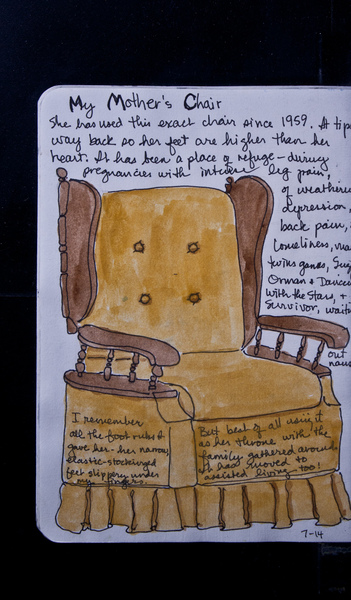 My Mother's Chair
She has used this exact chair since 1959. It tips
way back so her feet are higher than her
heart. It has been a place of refuge - during
pregnancies with intense leg pain,
of weathering
depression,
back pain,
loneliness,
twins games,
Orman & Dancing
with the Stars, +
Survivor, waiti
out
naus
I remember
all the foot rubs I
gave her - her narrow,
elastic-stockinged
feet slippery under
my fingers.
But best of all using it
as her throne with the
family gathered around.
It has moved to
assisted living - too!
7-14